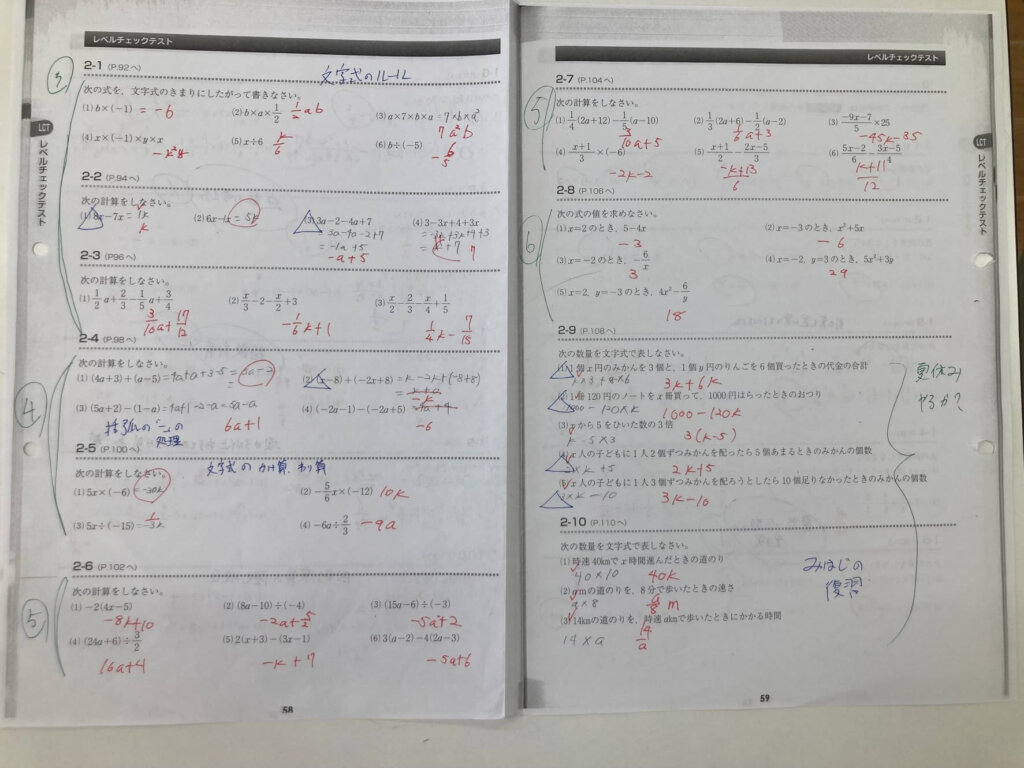 レベルチェックテスト
2-1 (P.92へ)
文字式のルール
③
次の式を、文字式のきまりにしたがって書きなさい。
(1) b×(−1) = −b
(2) b×a×1/2 1/2 ab
(3) a×7×b×a = 7×b×a²
7a²b
(4) x×(−1)×y×x
−x²y
(5) x÷6 x/6
(6) b÷(−5)
−b/5
2-2 (P.94へ)
次の計算をしなさい。
(1) 8x−7x = 1x
x
(2) 6x−x = 5x
(3) 3a−2−4a+7
3a−4a−2+7
= −1a+5
−a+5
(4) 3−3x+4+3x
= −3x+3x+4+3
7
2-3 (P96へ)
次の計算をしなさい。
(1) 1/2 a+2/3−1/5 a+3/4
3/10 a+17/12
(2) x/3−2−x/2+3
−1/6 x+1
(3) x/2−2/3−x/4+1/5
1/4 x−7/15
2-4 (P.98へ)
④
次の計算をしなさい。
(1) (4a+3)+(a−5) = 4a+a+3−5 = 5a−2
(2) (x−8)+(−2x+8) = x−2x+(−8+8)
−x
(3) (5a+2)−(1−a) = 4a+1−2−a = 5a−a
6a+1
(4) (−2a−1)−(−2a+5) −4a+4
−6
括弧の「−」の
処理
2-5 (P.100へ)
文字式のかけ算、わり算
次の計算をしなさい。
(1) 5x×(−6) = −30x
(2) −5/6 x×(−12) 10x
(3) 5x÷(−15) = −1/3 x
(4) −6a÷2/3 −9a
2-6 (P.102へ)
⑤
次の計算をしなさい。
(1) −2(4x−5)
−8x+10
(2) (8a−10)÷(−4)
−2a+5/2
(3) (15a−6)÷(−3)
−5a+2
(4) (24a+6)÷3/2
16a+4
(5) 2(x+3)−(3x−1)
−x+7
(6) 3(a−2)−4(2a−3)
−5a+6
58
LCT
レベルチェックテスト
レベルチェックテスト
2-7 (P.104へ)
⑤
次の計算をしなさい。
(1) 1/4(2a+12)−1/5(a−10)
3/10 a+5
(2) 1/3(2a+6)−1/2(a−2)
1/6 a+3
(3) −9x−7/5×25
−45x−35
(4) x+1/3×(−6)
−2x−2
(5) x+1/2−2x−5/3
−x+13/6
(6) 5x−2/6−3x−5/4
x+11/12
2-8 (P.106へ)
⑥
次の式の値を求めなさい。
(1) x=2のとき、5−4x
−3
(2) x=−3のとき、x²+5x
−6
(3) x=−2のとき、−6/x
3
(4) x=−2、y=3のとき、5x²+3y
29
(5) x=2、y=−3のとき、4x²−6/y
18
2-9 (P.108へ)
次の数量を文字式で表しなさい。
(1) 1個x円のみかんを3個と、1個y円のりんごを6個買ったときの代金の合計
x×3+y×6 3x+6y
(2) 1冊120円のノートをx冊買って、1000円はらったときのおつり
1000−120x 1000−120x
(3) xから5をひいた数の3倍
x−5×3 3(x−5)
(4) x人の子どもに1人2個ずつみかんを配ったら5個あまるときのみかんの個数
2×x+5 2x+5
(5) x人の子どもに1人3個ずつみかんを配ろうとしたら10個足りなかったときのみかんの個数
3×x−10 3x−10
夏休み
やるか?
2-10 (P.110へ)
次の数量を文字式で表しなさい。
(1) 時速40kmでx時間進んだときの道のり
40×10 40x
(2) amの道のりを、8分で歩いたときの速さ
a×8 a/8 m
(3) 14kmの道のりを、時速akmで歩いたときにかかる時間
14×a 14/a
みはじの
復習
59
LCT
レベルチェックテスト